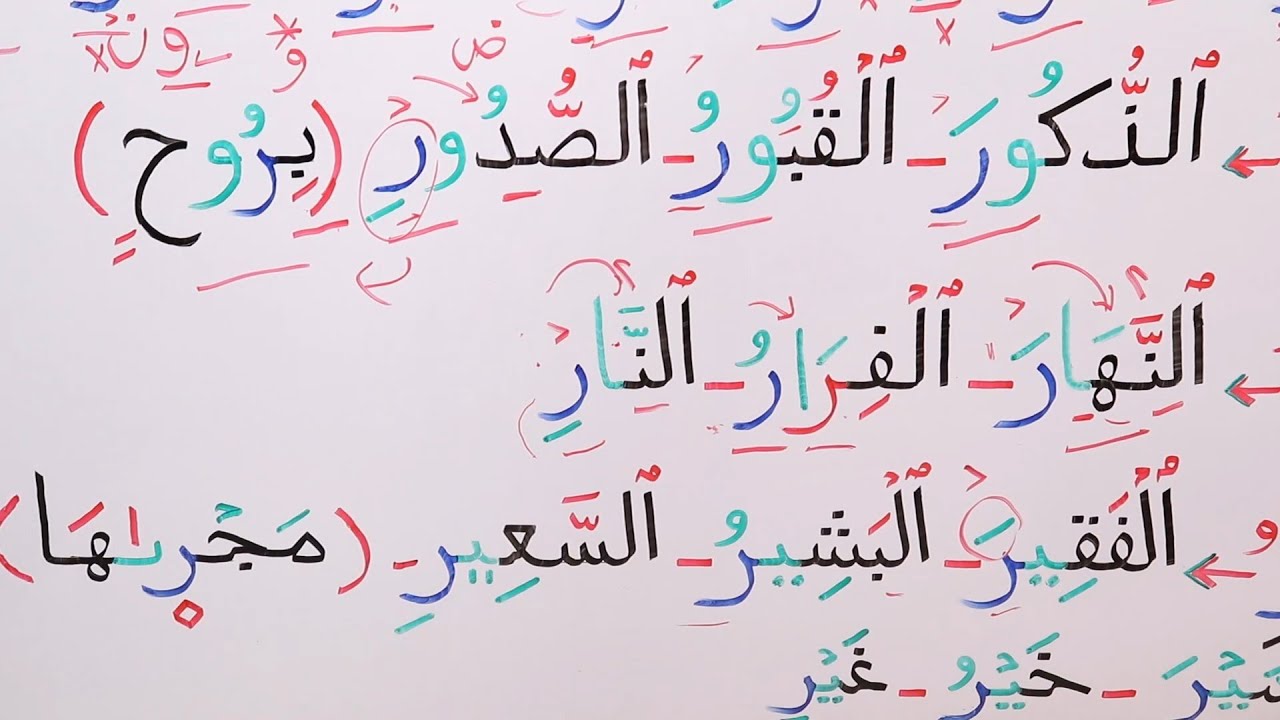 ٱلذُّكُورَ - ٱلْقُبُورُ - ٱلصُّدُورِ (بِرُوحٍ)
ٱلنَّهَارَ - ٱلْفِرَارُ - ٱلنَّارِ
ٱلْفَقِيرَ - ٱلْبَشِيرُ - ٱلسَّعِيرِ - (مَجْر۪ىٰهَا)
خَيْرُ - غَيْرِ